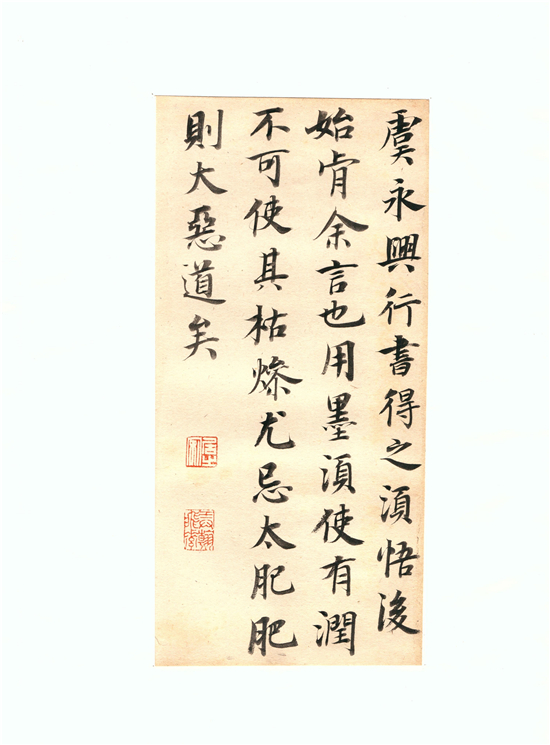 虞永興行書得之須悟後
始肯余言也用墨須使有潤
不可使其枯燥尤忌太肥肥
則大惡道矣